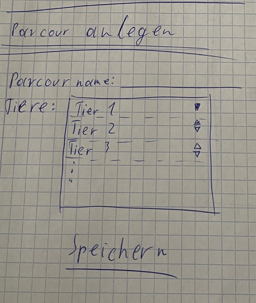 Parcour anlegen
Parcour name:
Tiere:
Tier 1
Tier 2
Tier 3
Speichern